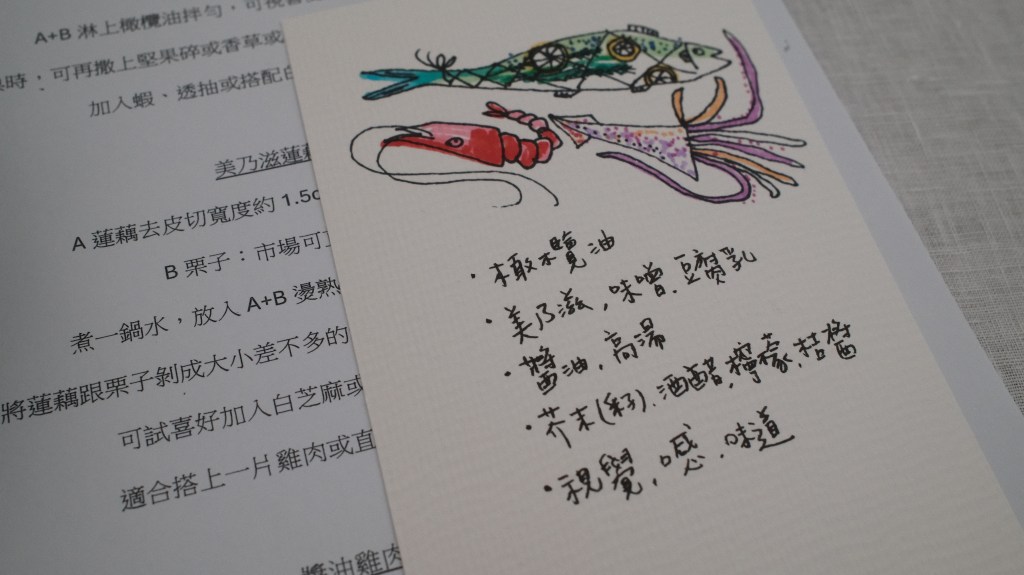 A+B 淋上橄欖油拌勻，可視
時：可再撒上堅果碎或香草或
加入蝦、透抽或搭配
美乃滋蓮藕
A 蓮藕去皮切寬度約 1.5c
B 栗子：市場可
煮一鍋水，放入 A+B 燙熟
將蓮藕跟栗子剝成大小差不多的
可試喜好加入白芝麻或
適合搭上一片雞肉或直
醬油雞肉
・橄欖油
・美乃滋，味噌．豆腐乳
・醬油，高湯
・芥末(籽)．酒醋，檸檬．桔醬
・視覺，口感．味道